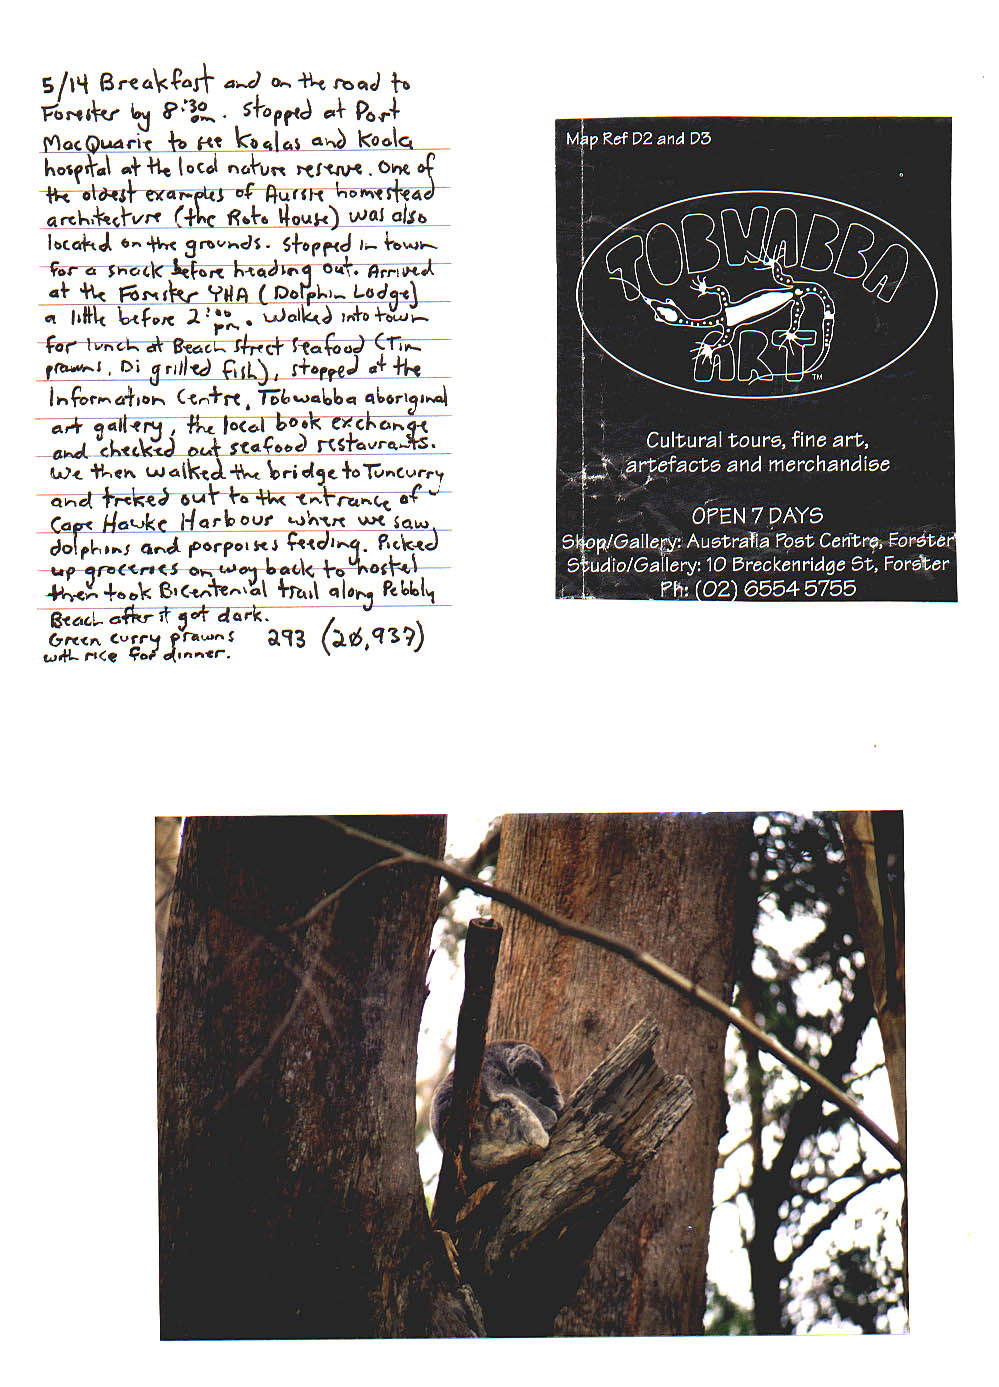 5/14 Breakfast and on the road to
Forester by 8:30 am. Stopped at Port
MacQuarie to see Koalas and Koala
hospital at the local nature reserve. One of
the oldest examples of Aussie homestead
architecture (the Roto House) was also
located on the grounds. Stopped in town
for a snack before heading out. Arrived
at the Forester YHA (Dolphin Lodge)
a little before 2:00 pm. Walked into town
for lunch at Beach Street Seafood (Tim
prawns, Di grilled fish), stopped at the
Information Centre, Tobwabba aboriginal
art gallery, the local book exchange
and checked out seafood restaurants.
We then walked the bridge to Tuncurry
and treked out to the entrance of
Cape Hawke Harbour where we saw
dolphins and porpoises feeding. Picked
up groceries on way back to hostel
then took Bicentenial trail along Pebbly
Beach after it got dark.
Green curry prawns 293 (20,937)
with rice for dinner.
Map Ref D2 and D3
TOBWABBA
ART™
Cultural tours, fine art,
artefacts and merchandise
OPEN 7 DAYS
Shop/Gallery: Australia Post Centre, Forster
Studio/Gallery: 10 Breckenridge St, Forster
Ph: (02) 6554 5755